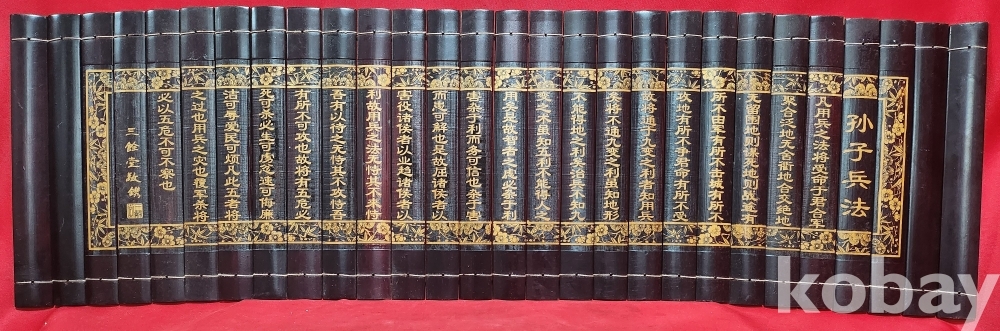 孙子兵法
凡用兵之法将受命于君合军
聚合泛地无舍衢地合交绝地
无留围地则谋死地则战途有
所不由军有所不击城有所不
攻地有所不争君命有所不受
故将通于九变之利者知用兵
矣将不通九变之利虽知地形
不能得地之利矣治兵不知九
变之术虽知五利不能得人之
用矣是故智者之虑必杂于利
害杂于利而务可信也杂于害
而患可解也是故屈诸侯者以
害役诸侯者以业趋诸侯者以
利故用兵之法无恃其不来恃
吾有以待之无恃其不攻恃吾
有所不可攻也故将有五危必
死可杀必生可虏忿速可侮廉
洁可辱爱民可烦凡此五者将
之过也用兵之灾也覆军杀将
必以五危不可不察也
三餘堂敬鐫
kobay